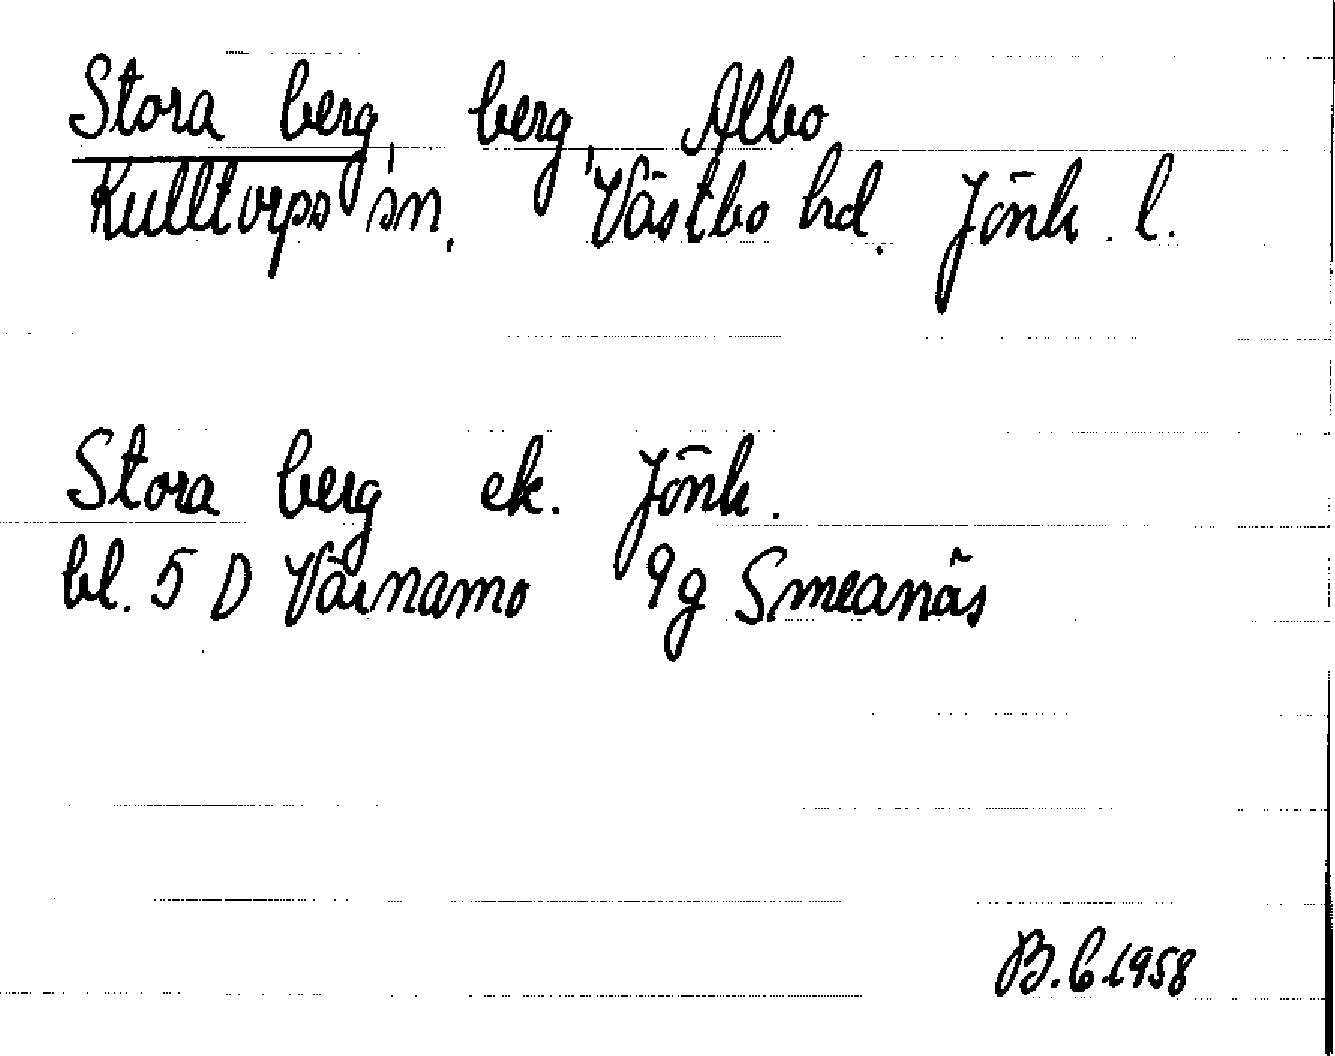 Stora berg, berg, Albo
Kulltorps sn, Västbo hd. Jönk. l.
Stora berg ek. Jönk.
bl. 5 D Värnamo 9g Smeanäs
B.C 1958